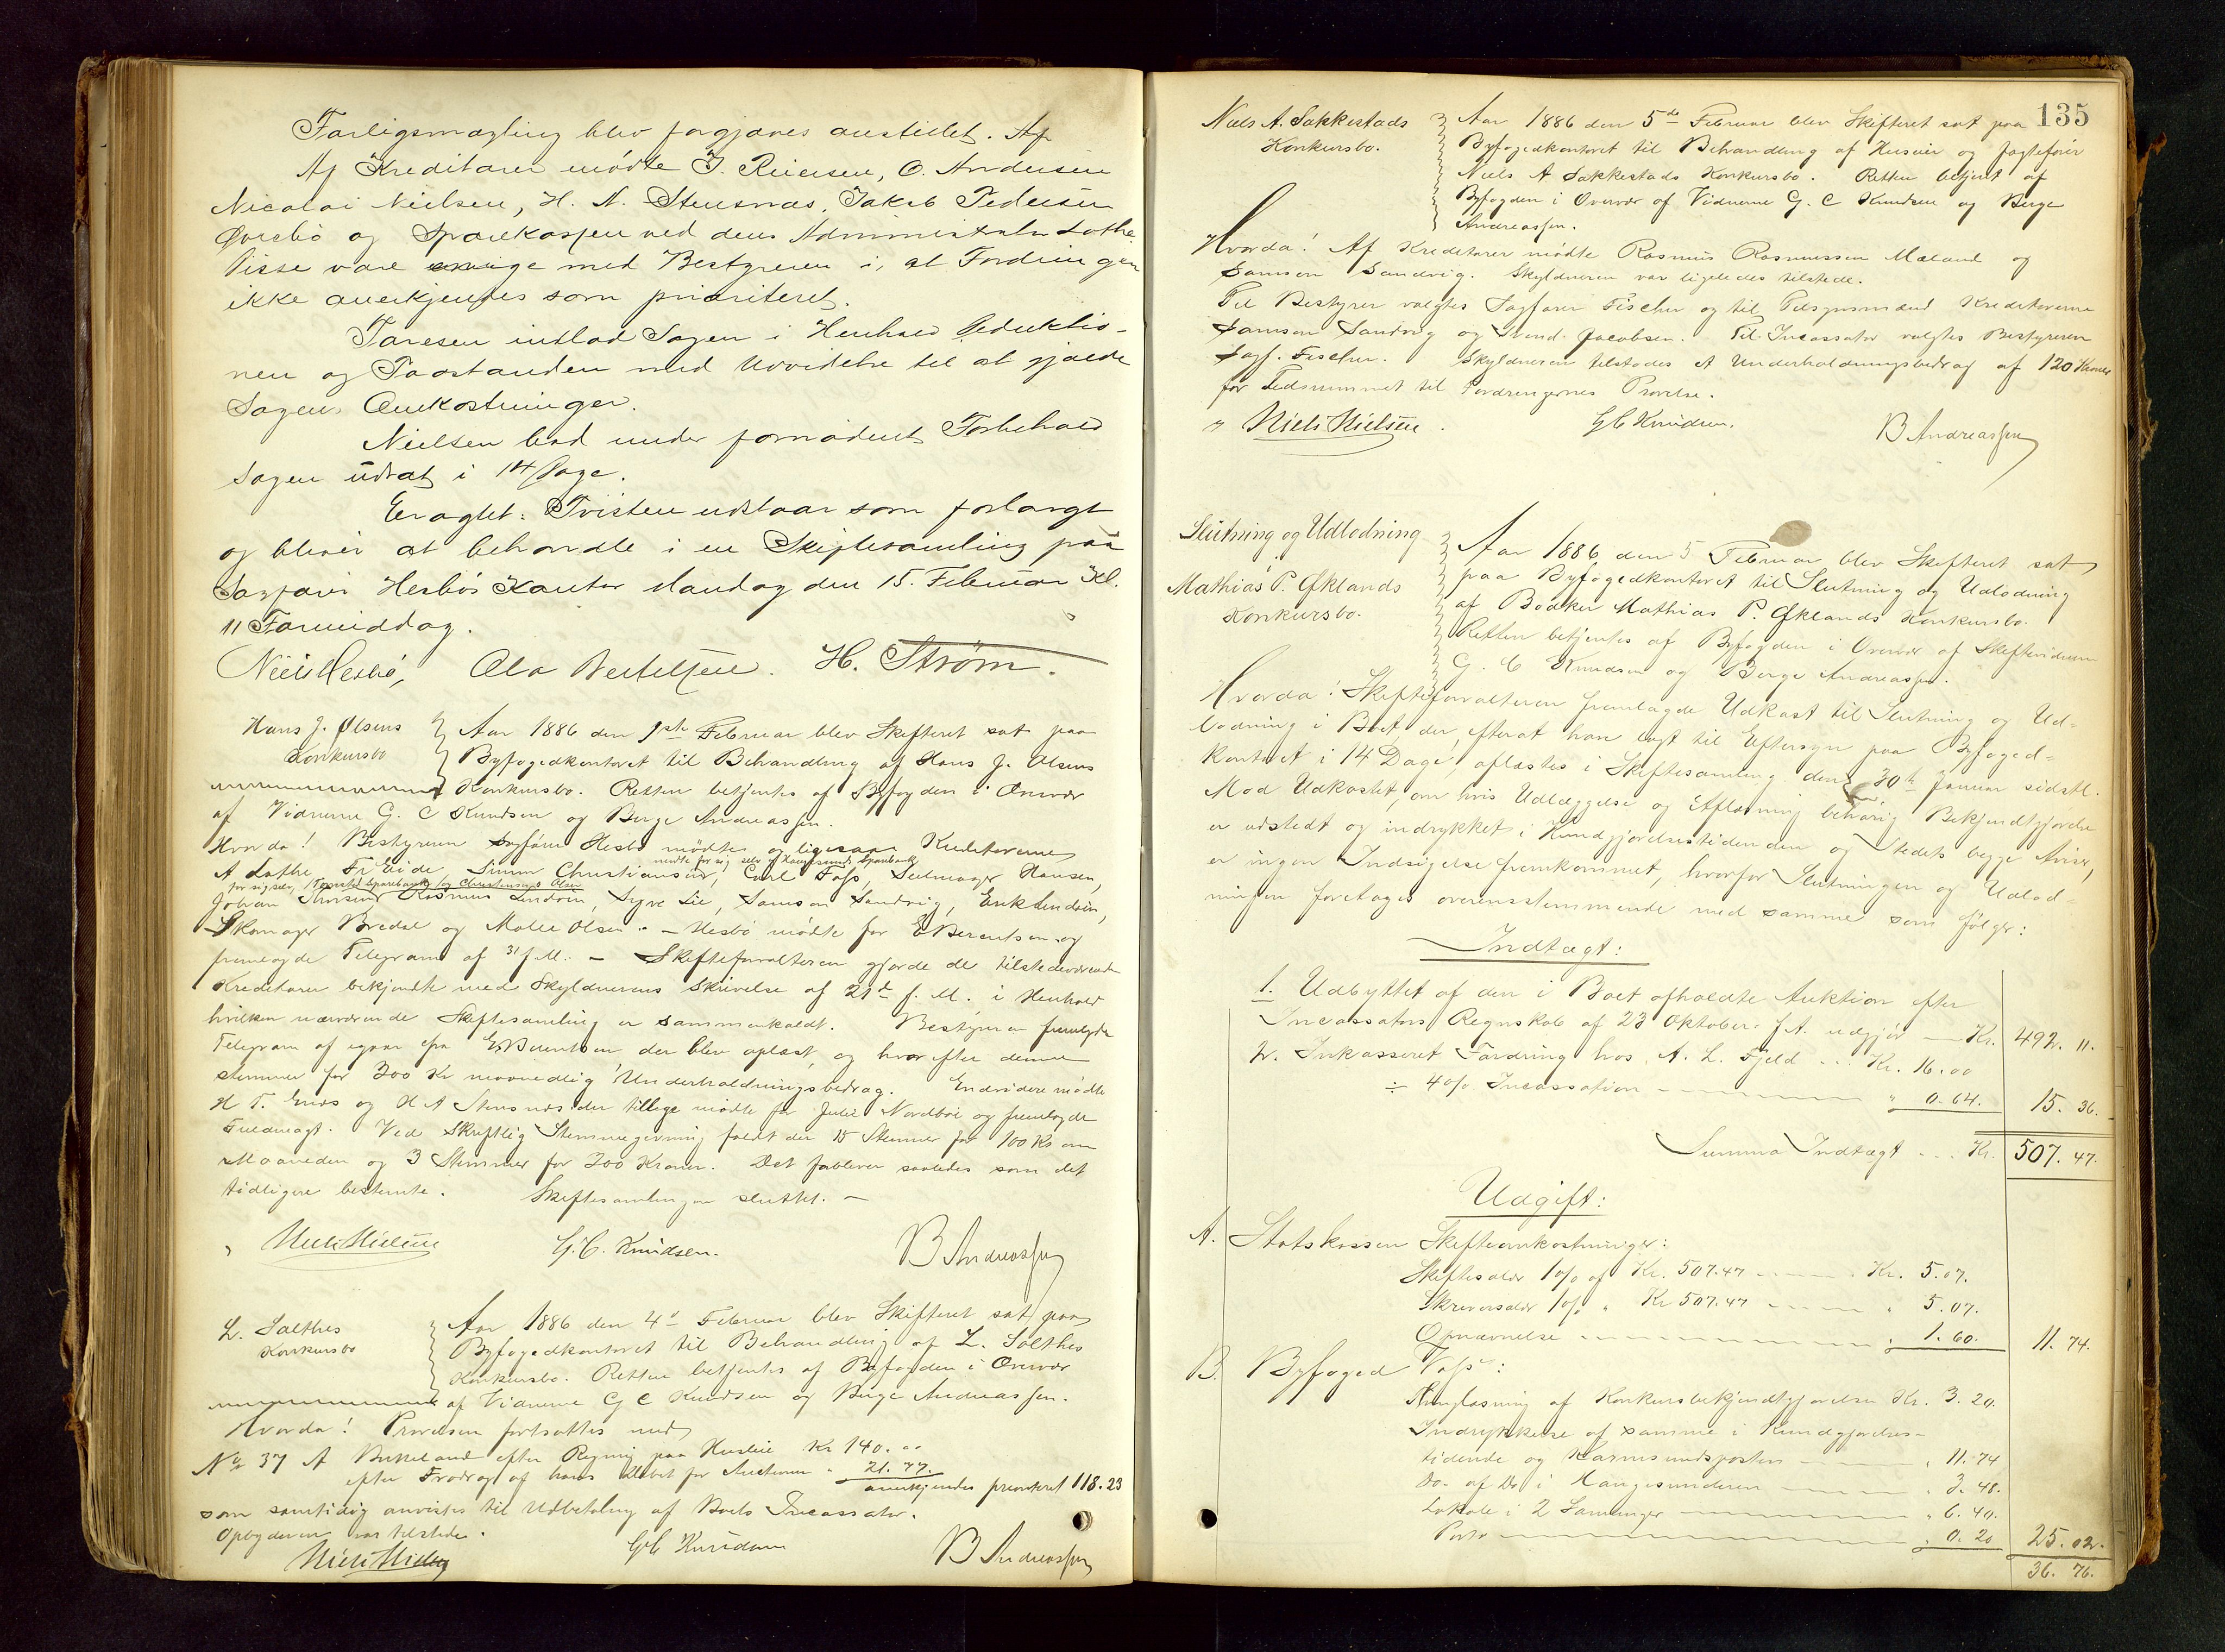 Forligsmægling blev forgjæves anstillet. Af
Af Kreditorer mødte J. Reiersen, O. Andersen
Nicolai Nielsen, H. N. Stensnæs, Jakob Pedersen
Øvrebø og Sparekassen ved dens Administrator Lothe.
Disse vare enige med Bestyreren i, at Fordringen
ikke anerkjendes som prioriteret.
Taresen indlod Sagen i Henhold Deduktio-
nen og Paastanden med Udvidelse til at gjælde
Sagens Omkostninger.
Nielsen bad under fornødent Forbehold
Sagen udsat i 14 Dage.
Eragtet: Tvisten udstaar som forlangt
og bliver at behandle i en Skiftesamling paa
Sagfører Hesbøs Kontor Mandag den 15. Februar Kl.
11 Formiddag.
Niels Hesbø, Ola Bertelsen. H. Strøm.
Hans J. Olsens
Konkursbo
Aar 1886 den 1ste Februar blev Skifteret sat paa
Byfogedkontoret til Behandling af Hans J. Olsens
Konkursbo. Retten betjentes af Byfogden i Overvær
af Vidnerne G. C Knudsen og Berge Andreassen.
Hvorda! Bestyreren Sagfører Hesbø mødte og ligesaa Kreditorerne
mødte for sig selv og Haugesunds Sparebank
A Lothe, Fr Eide, Simon Christiansen, Carl Foss, Seilmager Hansen,
for sig selv, Sparebank og Christensens Olsen
Johan Thorsen, Rasmus Lindøen, Syre Lie, Samson Sandvig, Erik Lindøen,
Skomager Bredal og Malle Olsen. – Hesbø mødte for E Berentsen og
fremlagde Telegram af 31 f. M. – Skifteforvalteren gjorde de tilstedeværende
Kreditorer bekjendte med Skyldnerens Skrivelse af 21de f. M. i Henhold
hvilken nærværende Skiftesamling er sammenkaldt. Bestyreren fremlagde
Telegram af igaar fra E Berentsen der blev oplæst, og hvorefter denne
stemmer for 200 Kr maanedlig Underholdningsbedrag. Endvidere mødte
H T. Enes og H A Stensnæs der tillige mødte for Julie Nordbøe og fremlagde
Fuldmagt. Ved Skriftlig Stemmegivning faldt der 15 Stemmer for 100 Kr om
Maaneden og 3 Stemmer for 200 Kroner. Det forbliver saaledes som det
tidligere bestemte. Skiftesamlingen sluttet. –
Niels Nielsen G. C. Knudsen. B Andreassen
L. Salthes
Konkursbo
Aar 1886 den 4de Februar blev Skifteret sat paa
Byfogedkontoret til Behandling af L. Salthes
Konkursbo. Retten betjentes af Byfogden i Overvær
af Vidnerne G C Knudsen og Berge Andreassen.
Hvorda! Prøvelsen fortsattes med
No 37 A efter Regning paa Husleie Kr 140.00
efter Fradrag af hans for Auctionen " 21.77.
anerkjendes prioriteret 118.23
som samtidig anvistes til Udbetaling af Boets Incassator.
Opbyderen var tilstede.
Niels Nielsen G C Knudsen B Andreassen
135
Niels A. Sakkestads
Konkursbo.
Aar 1886 den 5de Februar blev Skifteret sat paa
Byfogedkontoret til Behandling af Huseier og Jagtefører
Niels A Sakkestads Konkursbo. Retten betjent af
Byfogden i Overvær af Vidnerne G. C Knudsen og Berge
Andreassen.
Hvorda! Af Kreditorer mødte Rasmus Rasmussen Mæland og
Samson Sandvig. Skyldneren var ligeledes tilstede.
Til Bestyrer valgtes Sagfører Fischer og til Tilsynsmænd Kreditorerne
Samson Sandvig og Svend Jacobsen. Til Incassator valgtes Bestyreren
Sagf. Fischer. Skyldneren tilstodes et Underholdningsbedrag af 120 Kroner
for Tidsrummet til Fordringernes Prøvelse.
Niels Nielsen. G C Knudsen. B Andreassen
Slutning og Udlodning
i
Mathias P. Øklands
Konkursbo.
Aar 1886 den 5 Februar blev Skifteret sat
paa Byfogedkontoret til Slutning og Udlodning
af Bødker Mathias P. Øklands Konkursbo.
Retten betjentes af Byfogden i Overvær af Skiftevidnerne
G. C Knudsen og Berge Andreassen.
Hvorda! Skifteforvalteren fremlagde Udkast til Slutning og Ud-
lodning i Boet, der, efterat have lagt til Eftersyn paa Byfoged-
kontoret i 14 Dage, oplæstes i Skiftesamling den 30te Januar sidstl.
Mod Udkastet, om hvis Udlæggelse og Oplæsning behørig Bekjendtgjørelse
er udstedt og indrykket i Kundgjørelsestidenden og Stedets begge Aviser,
er ingen Indsigelse fremkommet, hvorfor Slutningen og Udlod-
ningen foretages overensstemmende med samme som følger:
Indtægt:
1. Udbyttet af den i Boet afholdte Auktion efter
Incassators Regnskab af 23 Oktober f. A. udgjør — Kr. 492. 11.
2. Inkasseret Fordring hos A. L. Fjeld ... Kr. 16.00
÷ 4 o/o Incassation " 0.64. 15. 36.
Summa Indtægt ... Kr. 507. 47.
Udgift:
A. Statskassen Skifteomkostninger:
Skiftesalær 1 o/o af Kr. 507.47 Kr. 5.07.
Skriversalær 1 o/o " Kr 507.47 " 5.07.
Opnævnelse " 1.60. 11. 74.
B. Byfoged Voss:
Thinglæsning af Konkursbekjendtgjørelsen Kr. 3.20.
Indrykkelse af samme i Kundgjørelses-
tidende og Karmsundsposten " 11.74
Do. af Do i Haugesunderen " 3.48.
Lokale i 2 Samlinger " 6.40.
Porto " 0.20 25.02.
36. 76.